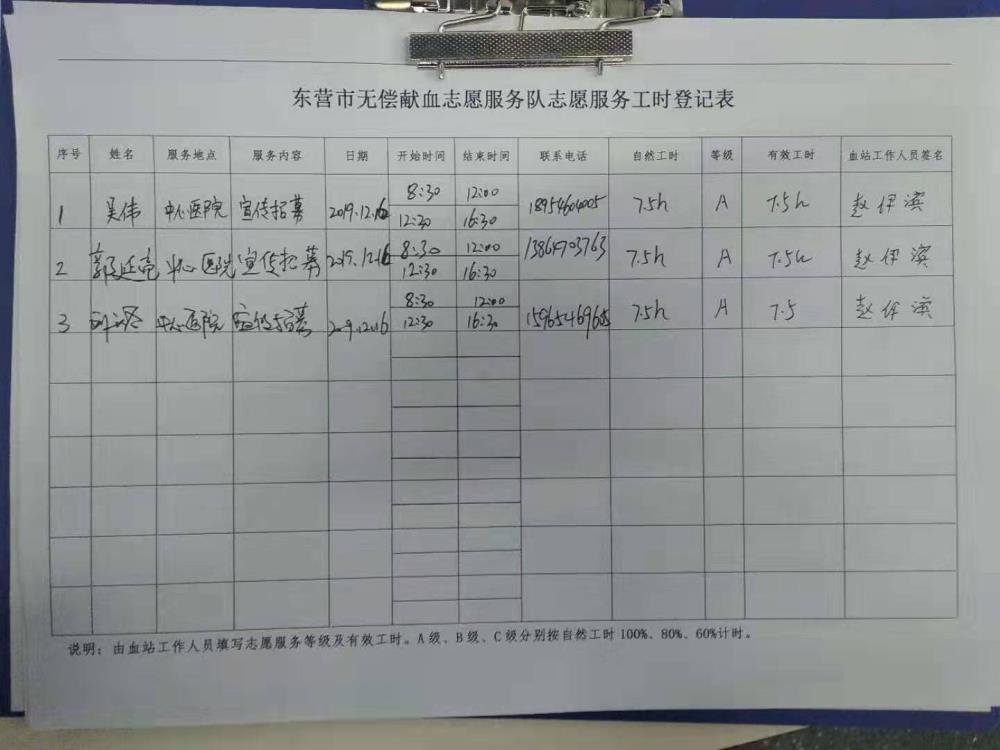 东营市无偿献血志愿服务队志愿服务工时登记表
序号 姓名 服务地点 服务内容 日期 开始时间 结束时间 联系电话 自然工时 等级 有效工时 血站工作人员签名
1 吴伟 中心医院 宣传招募 2019.12.16 8:30 12:00 18954604005 7.5h A 7.5h 赵伊滨
12:30 16:30
2 中心医院 宣传招募 2019.12.16 8:30 12:00 13864703763 7.5h A 7.5h 赵伊滨
12:30 16:30
3 中心医院 宣传招募 2019.12.16 8:30 12:00 7.5h A 7.5 赵伊滨
12:30 16:30
说明：由血站工作人员填写志愿服务等级及有效工时。A级、B级、C级分别按自然工时100%、80%、60%计时。